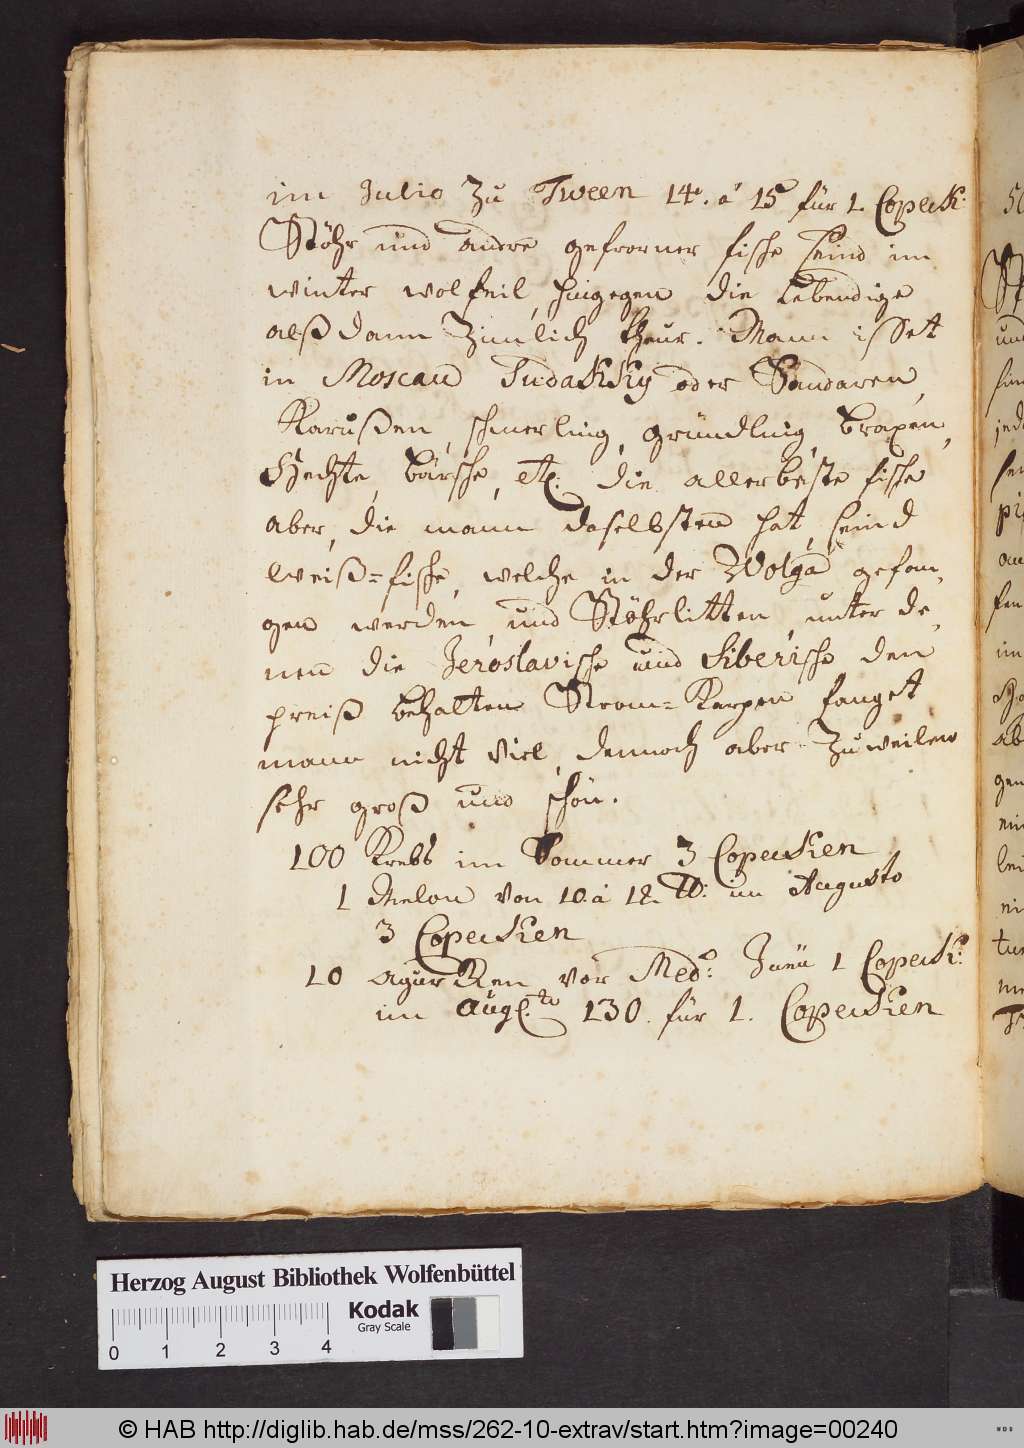 im Julio zu Tweer 14. â 15 für 1. Copeck:
Stöhr und andre gefrorner fische seind im
winter wolfeil, hingegen die lebendige
alß dann zimlich theur. Mann isset
in Moscau Sudakky oder Sandaren,
Karußen, schmerling, gründling, braxen,
Hechte, bärsche, etc: die allerbeste fische
aber, die mann daselbsten hat, seind
Weiß=fische, welche in der Wolga gefan,
gen werden, und Stöhrlitten, unter de,
nen die Jeroslavische und Siberische den
preiß behalten Strom=Karpen fanget
mann nicht viel, dennoch aber zuweilen
sehr groß und schön.
100 Krebs im Sommer 3 Copecken
1 Melon von 10. â 12. ℔: im Augusto
3 Copecken
10 agurken vor Med: Junii 1 Copeck:
im Aug. 130. für 1. Copecken
Herzog August Bibliothek Wolfenbüttel
Kodak
Gray Scale
0 1 2 3 4
© HAB http://diglib.hab.de/mss/262-10-extrav/start.htm?image=00240